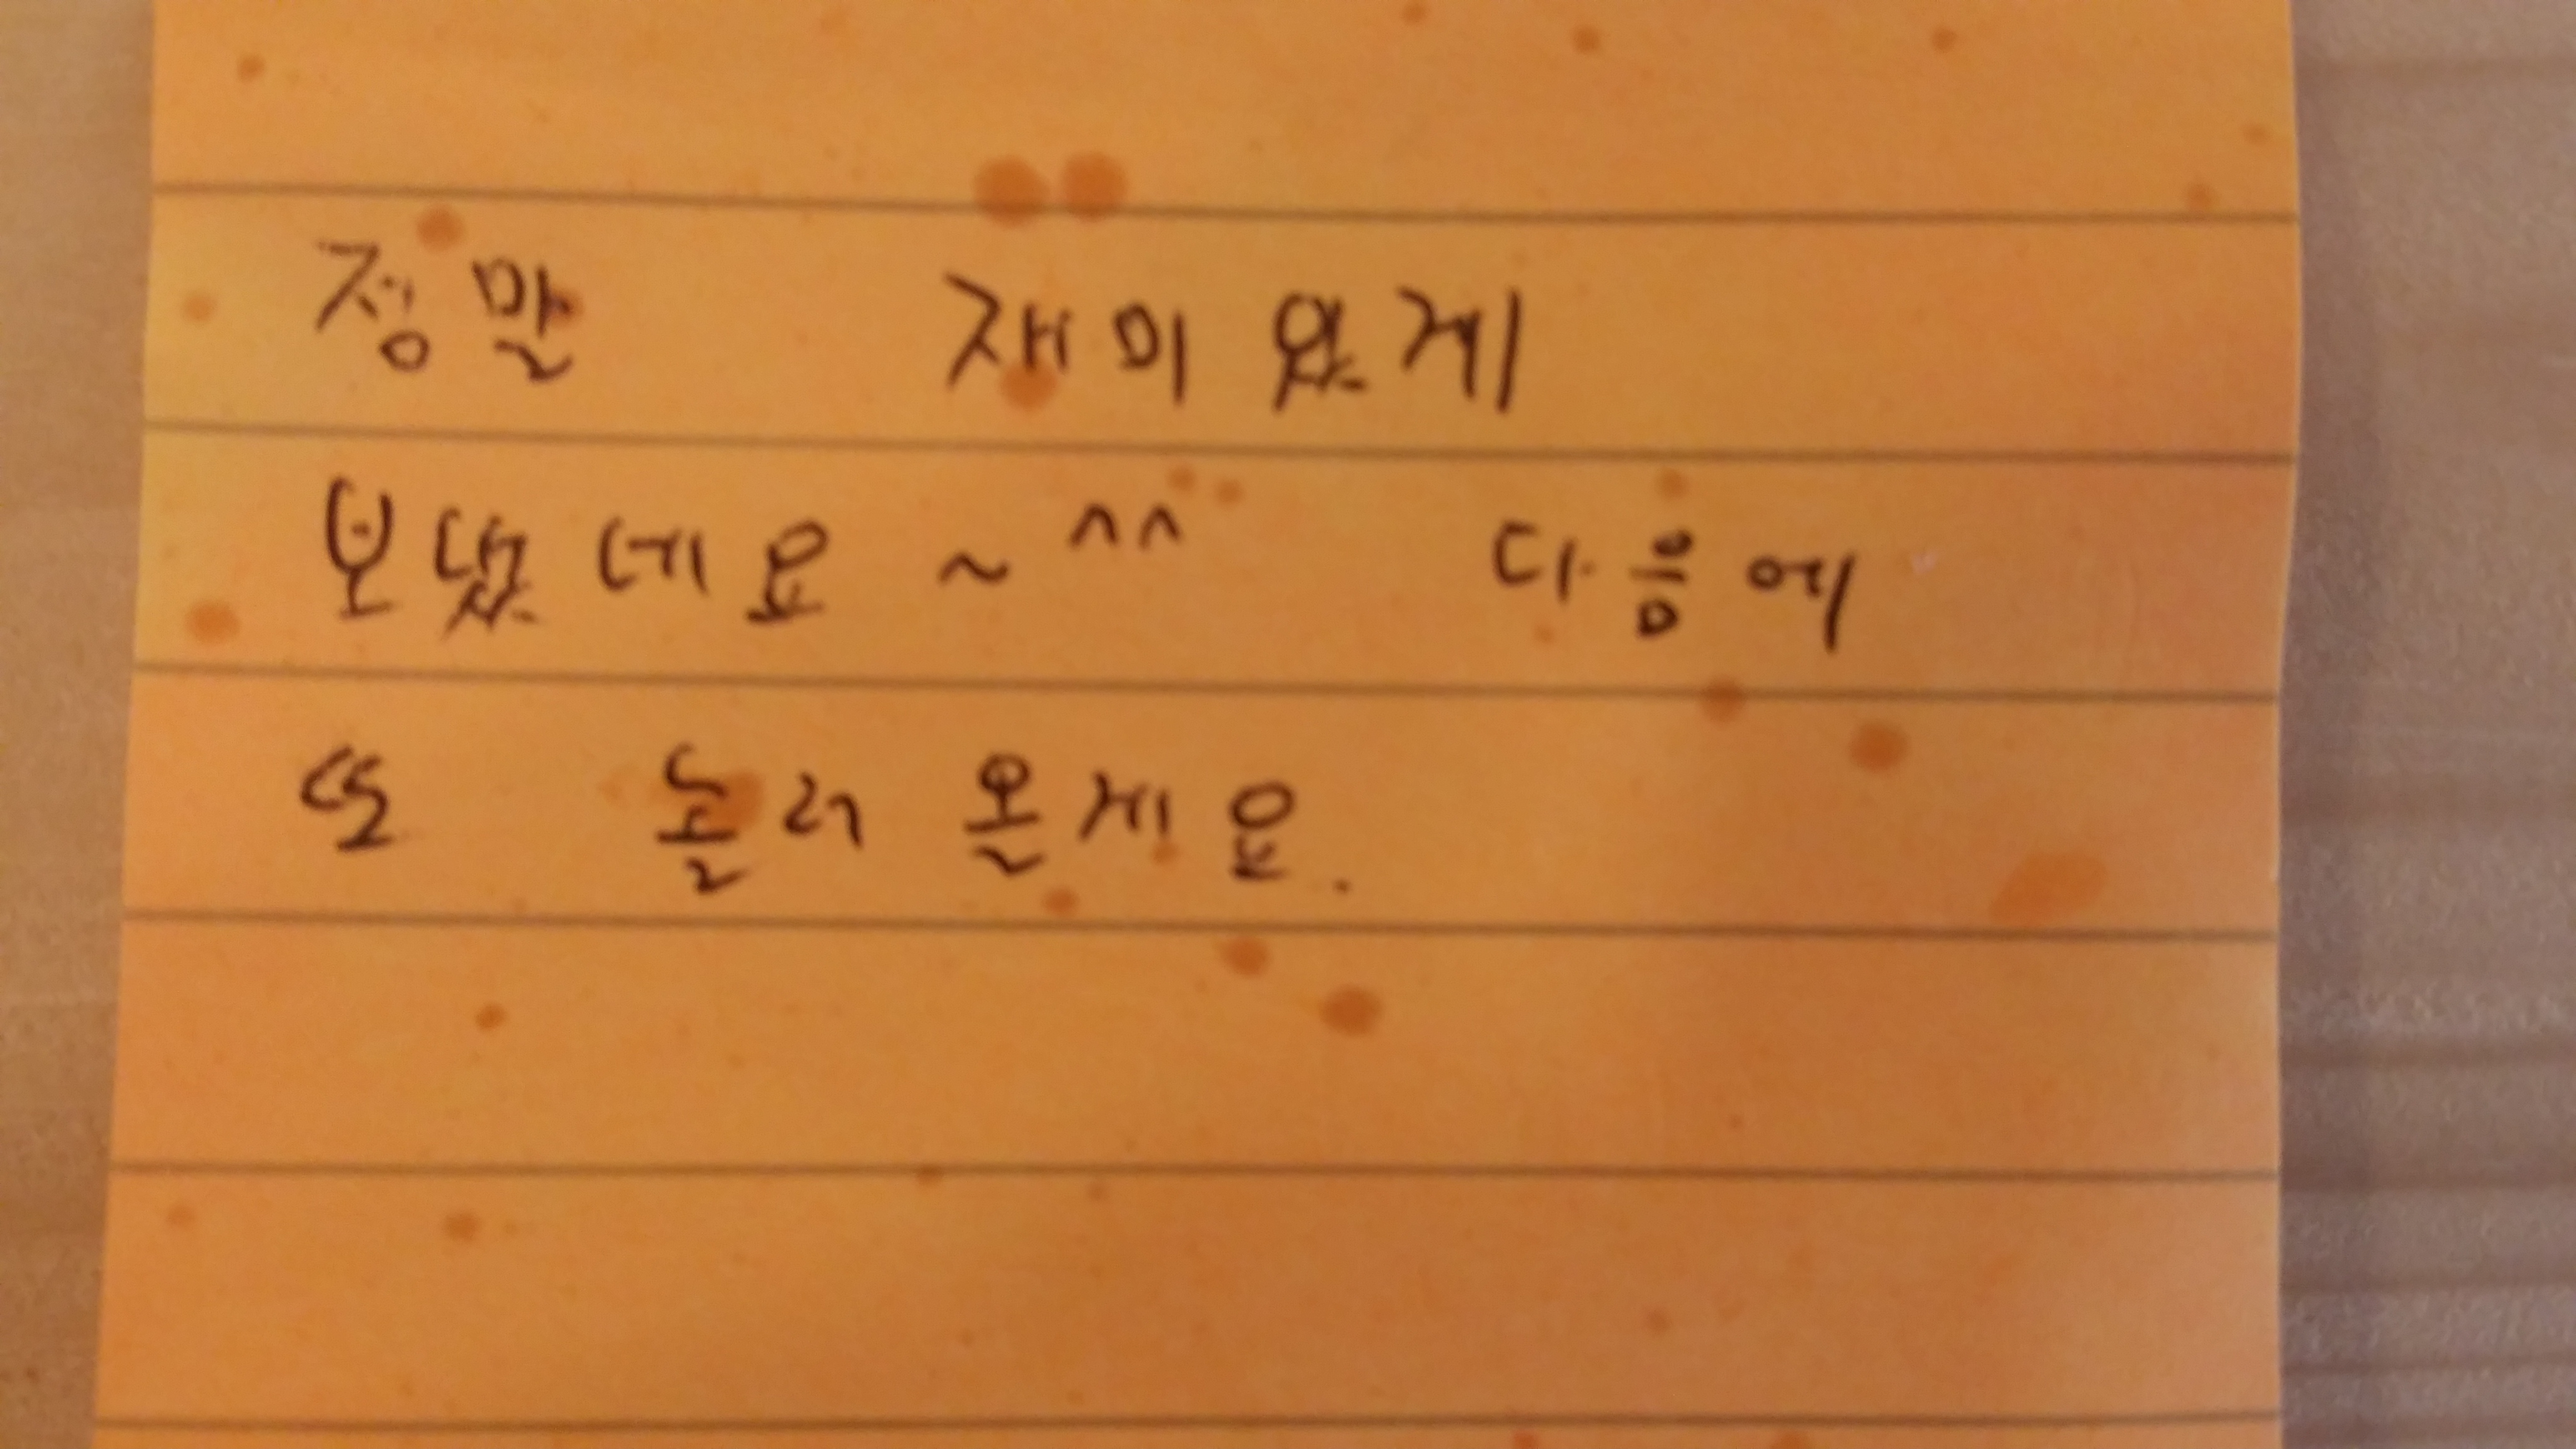 정말 재미 있게
보냈네요 ~ ^^ 다음에
또 놀러 올게요.